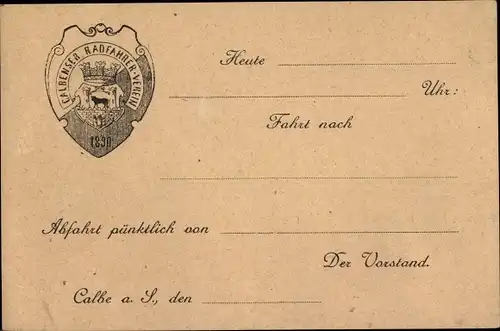 CALBENSER RADFAHRER-VEREIN
1890
Heute
Uhr:
Fahrt nach
Abfahrt pünktlich von
Der Vorstand.
Calbe a. S., den